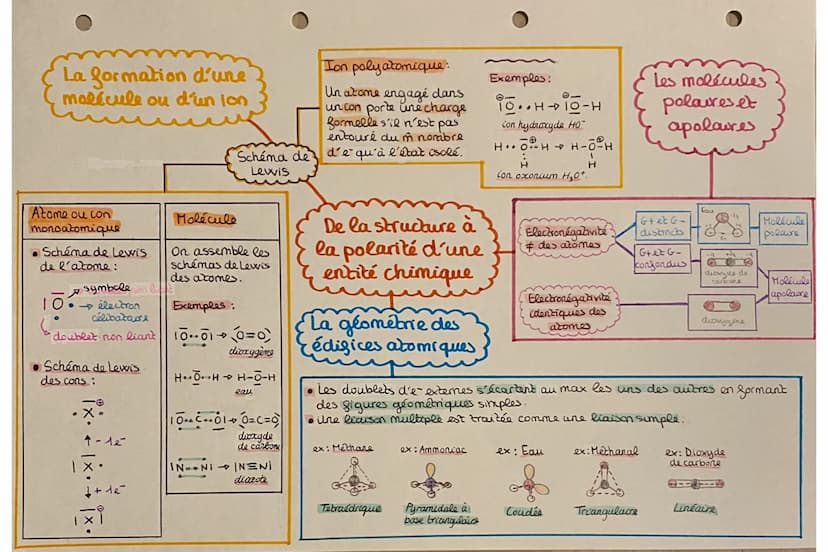 La formation d'une
molécule ou d'un ion
Schéma de
Lewis
Ion polyatomique:
Un atome engagé dans
un ion porte une charge
formelle s'il n'est pas
entouré du m̂ nombre
d'e⁻ qu'à l'état isolé.
Exemples:
ion hydroxyde HO⁻
ion oxonium H₃O⁺
Les molécules
polaires et
apolaires
De la structure à
la polarité d'une
entité chimique
Atome ou ion
monoatomique
• Schéma de Lewis
de l'atome:
symbole
électron
célibataire
doublet non liant
• Schéma de Lewis
des ions:
- 1e⁻
+ 1e⁻
Molécule
On assemble les
schémas de Lewis
des atomes.
Exemples:
dioxygène
eau
dioxyde
de carbone
diazote
Electronégativité
≠ des atomes
G+ et G-
distincts
Eau
Molécule
polaire
G+ et G-
confondus
dioxyde de
carbone
Molécule
apolaire
Electronégativité
identiques des
atomes
dioxygène
La géométrie des
édifices atomiques
• Les doublets d'e⁻ externes s'écartent au max les uns des autres en formant
des figures géométriques simples.
• Une liaison multiple est traitée comme une liaison simple.
ex: Méthane
Tétraédrique
ex: Ammoniac
Pyramidale à
base triangulaire
ex: Eau
Coudée
ex: Méthanal
Triangulaire
ex: Dioxyde
de carbone
Linéaire